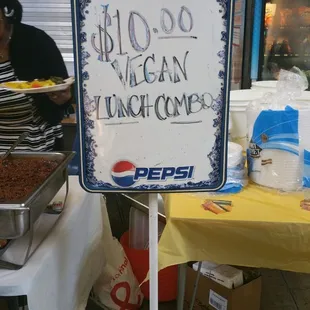 $10.00
VEGAN
LUNCH COMBO
PEPSI